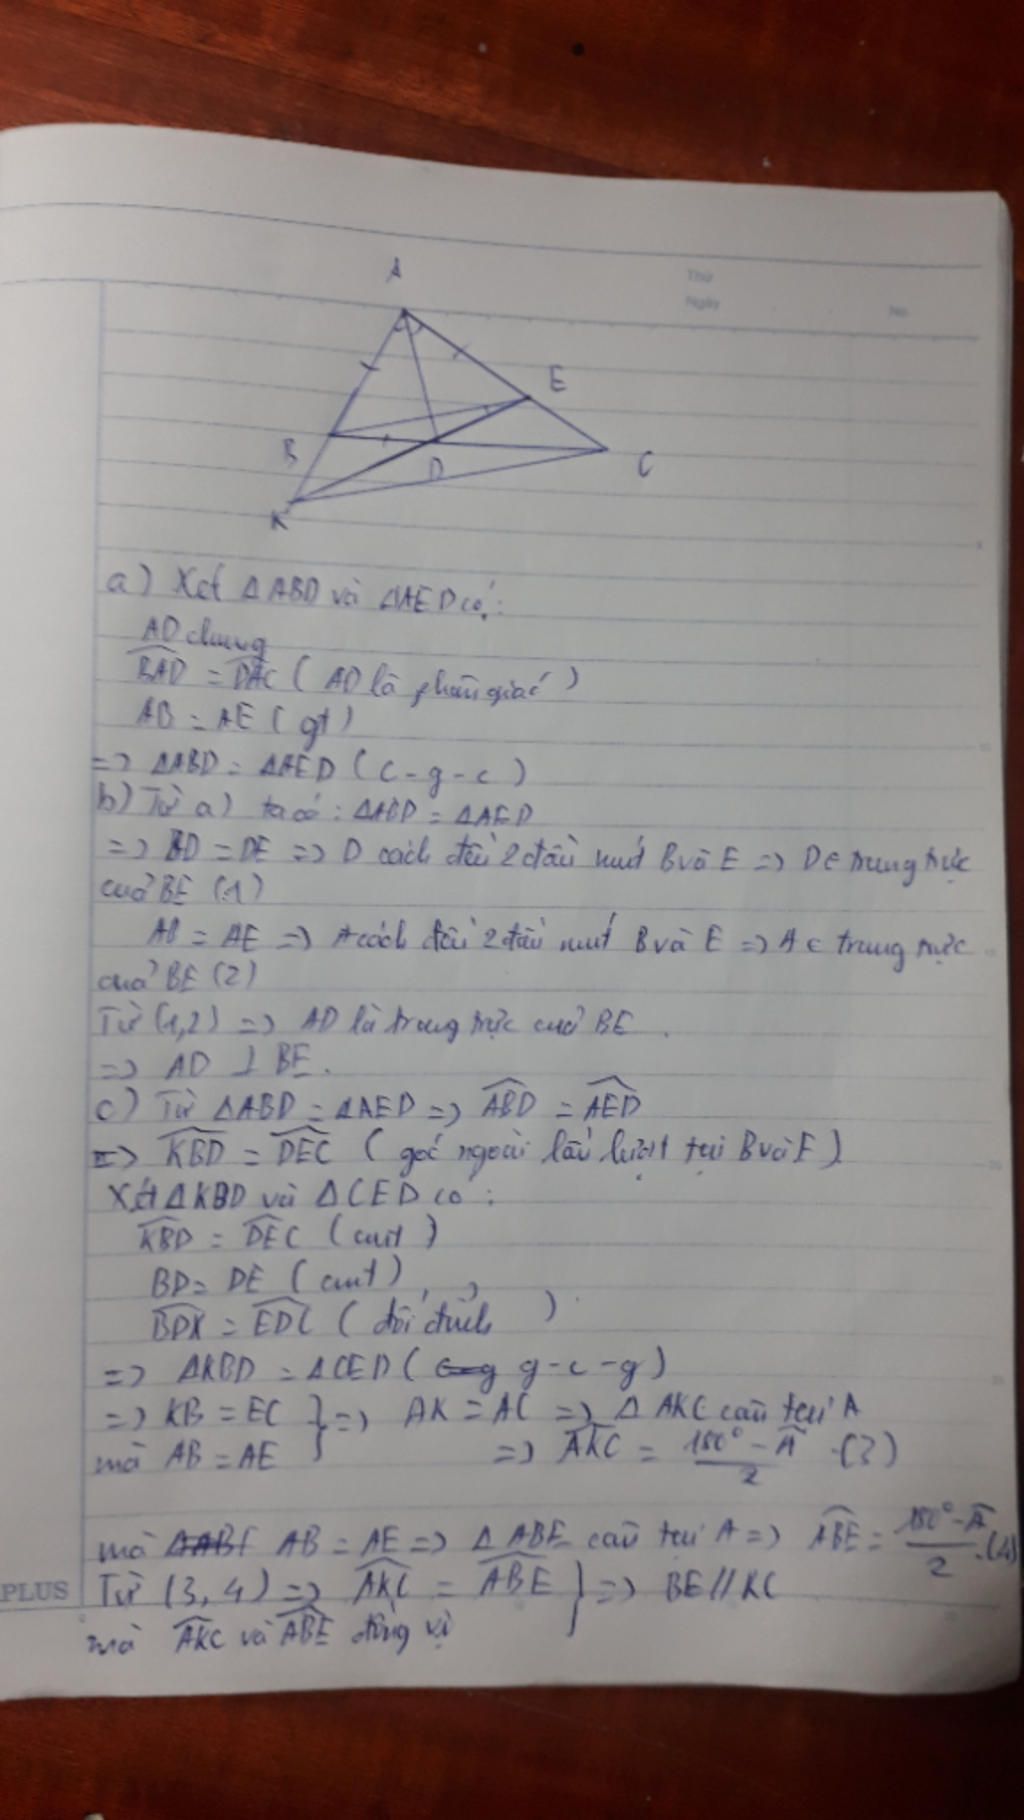 Thứ
Ngày
No.
A
E
B
D
C
K
a) Xét ΔABD và ΔAED có:
AD chung
\widehat{BAD} = \widehat{DAC} ( AD là phân giác )
AB = AE ( gt )
=> ΔABD = ΔAED ( c - g - c )
b) Từ a) ta có : ΔABD = ΔAED
=> BD = DE => D cách đều 2 đầu mút B và E => D ∈ trung trực
của BE (1)
AB = AE => A cách đều 2 đầu mút B và E => A ∈ trung trực
của BE (2)
Từ (1,2) => AD là trung trực của BE .
=> AD ⊥ BE.
c) Từ ΔABD = ΔAED => \widehat{ABD} = \widehat{AED}
=> \widehat{KBD} = \widehat{DEC} ( góc ngoài lần lượt tại B và E )
Xét ΔKBD và ΔCED có :
\widehat{KBD} = \widehat{DEC} ( cmt )
BD = DE ( cmt )
\widehat{BDK} = \widehat{EDC} ( đối đỉnh )
=> ΔKBD = ΔCED ( g - c - g )
=> KB = EC } => AK = AC => Δ AKC cân tại A
mà AB = AE => \widehat{AKC} = \frac{180° - \widehat{A}}{2} (3)
mà AB = AE => Δ ABE cân tại A => \widehat{ABE} = \frac{180° - \widehat{A}}{2} (4)
PLUS
Từ (3, 4) => \widehat{AKC} = \widehat{ABE} } => BE // KC
mà \widehat{AKC} và \widehat{ABE} đồng vị